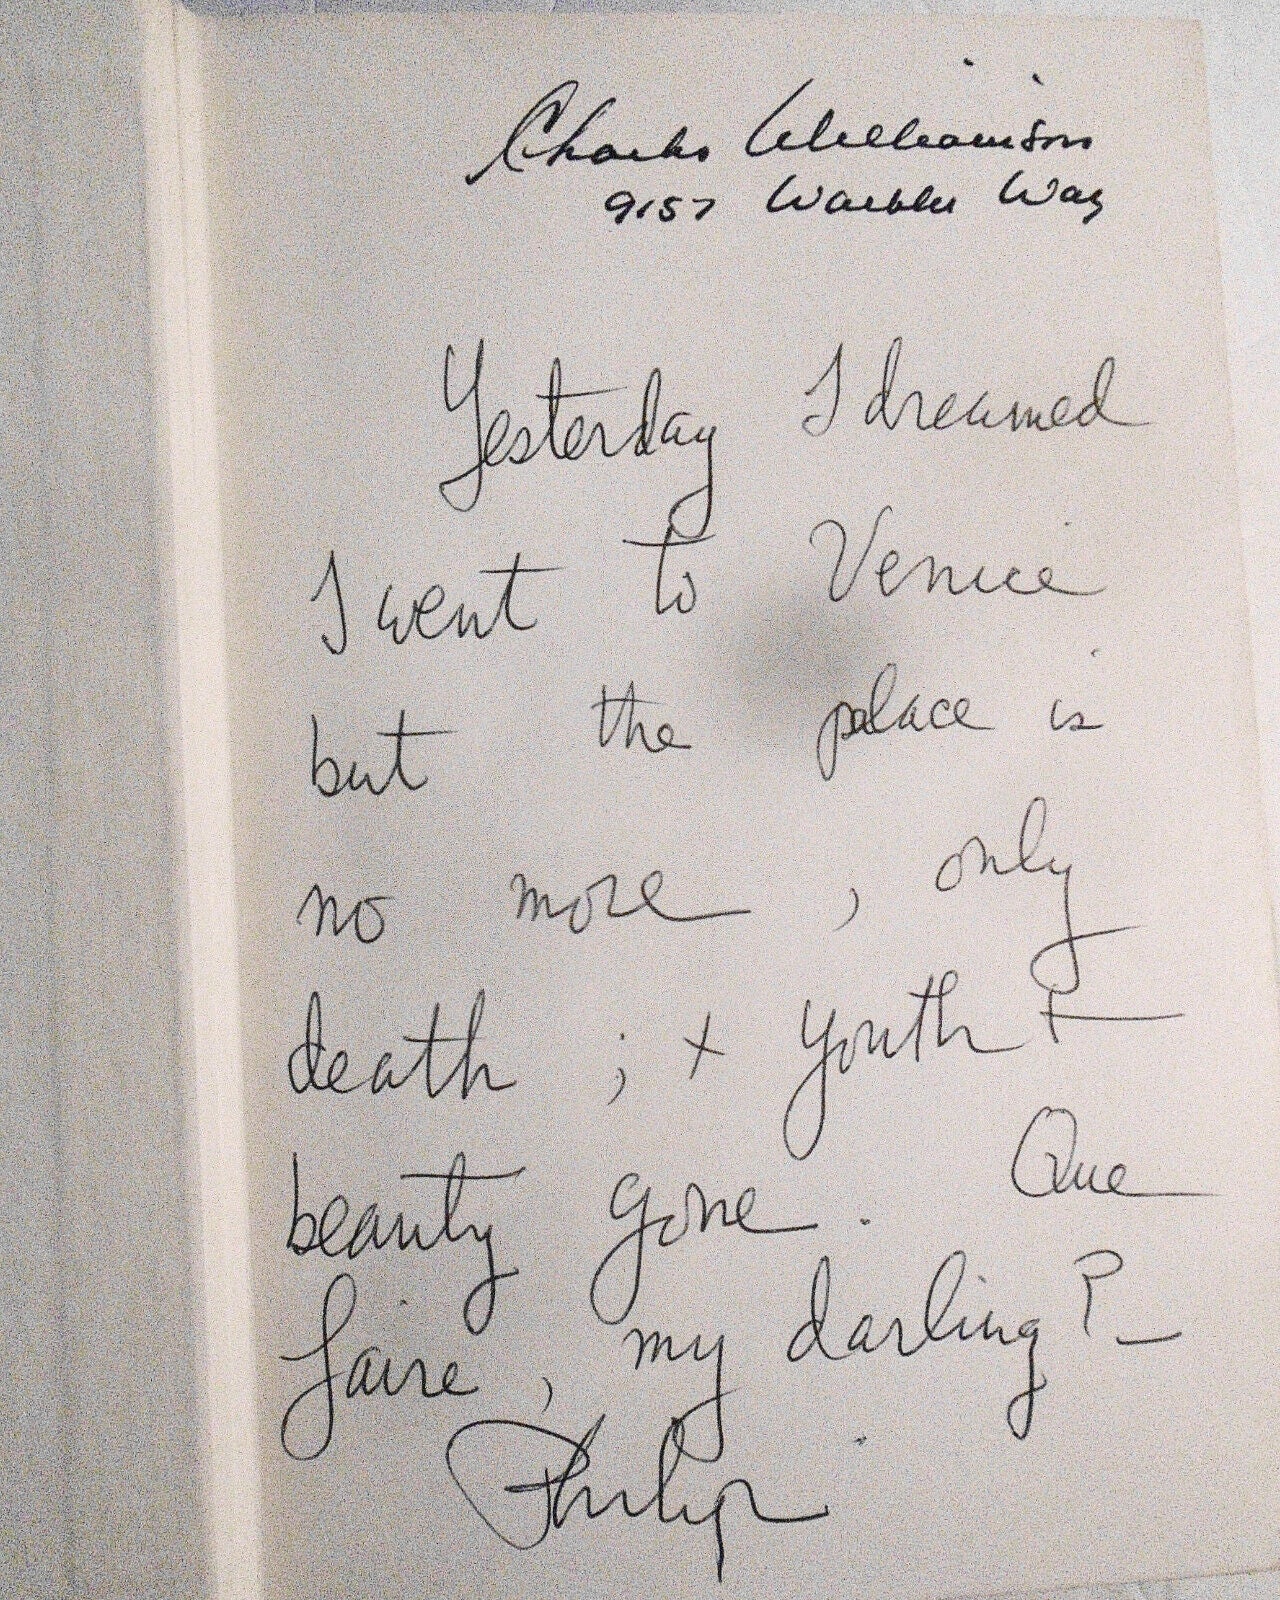 Charles Williamson
9157 Warbler Way
Yesterday I dreamed
I went to Venice
but the palace is
no more, only
death; + youth +
beauty gone. Que
faire, my darling? _
Philip